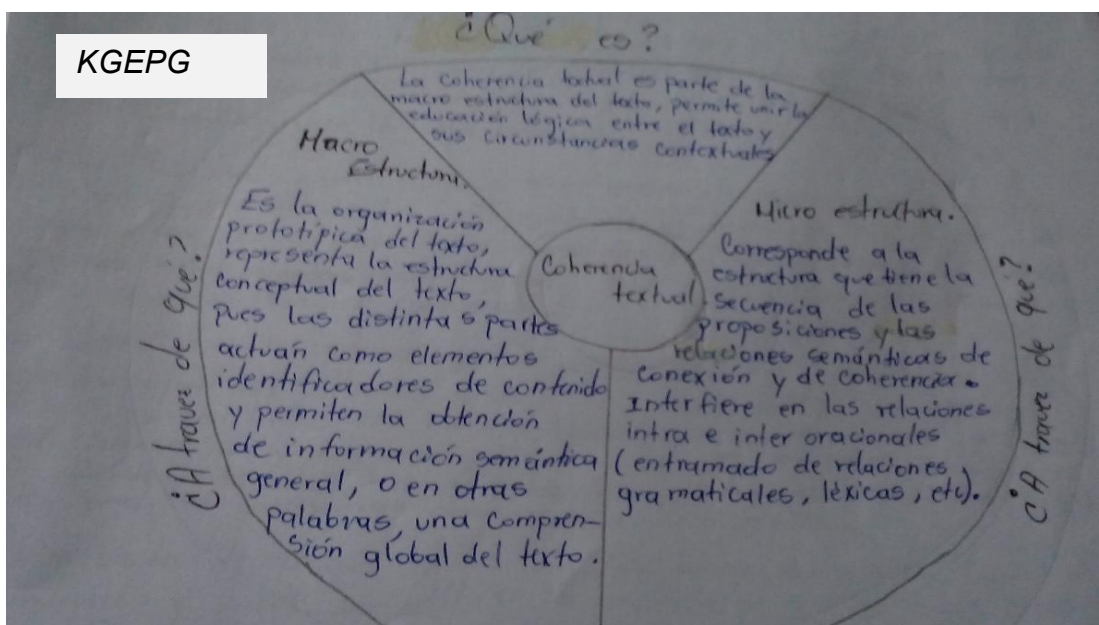 KGEPG
¿Qué es?
La coherencia textual es parte de la
macro estructura del texto, permite unir la
educación lógica entre el texto y
sus circunstancias contextuales
Macro
Estructura.
Es la organización
prototípica del texto,
representa la estructura
conceptual del texto,
pues las distintas partes
actuán como elementos
identificadores de contenido
y permiten la obtención
de información semántica
general, o en otras
palabras, una compren-
sión global del texto.
¿A travez de qué?
Coherencia
textual
Micro estructura.
Corresponde a la
estructura que tiene la
secuencia de las
proposiciones y las
relaciones semánticas de
conexión y de coherencia.
Interfiere en las relaciones
intra e inter oracionales
(entramado de relaciones
gramaticales, léxicas, etc).
¿A travez de qué?